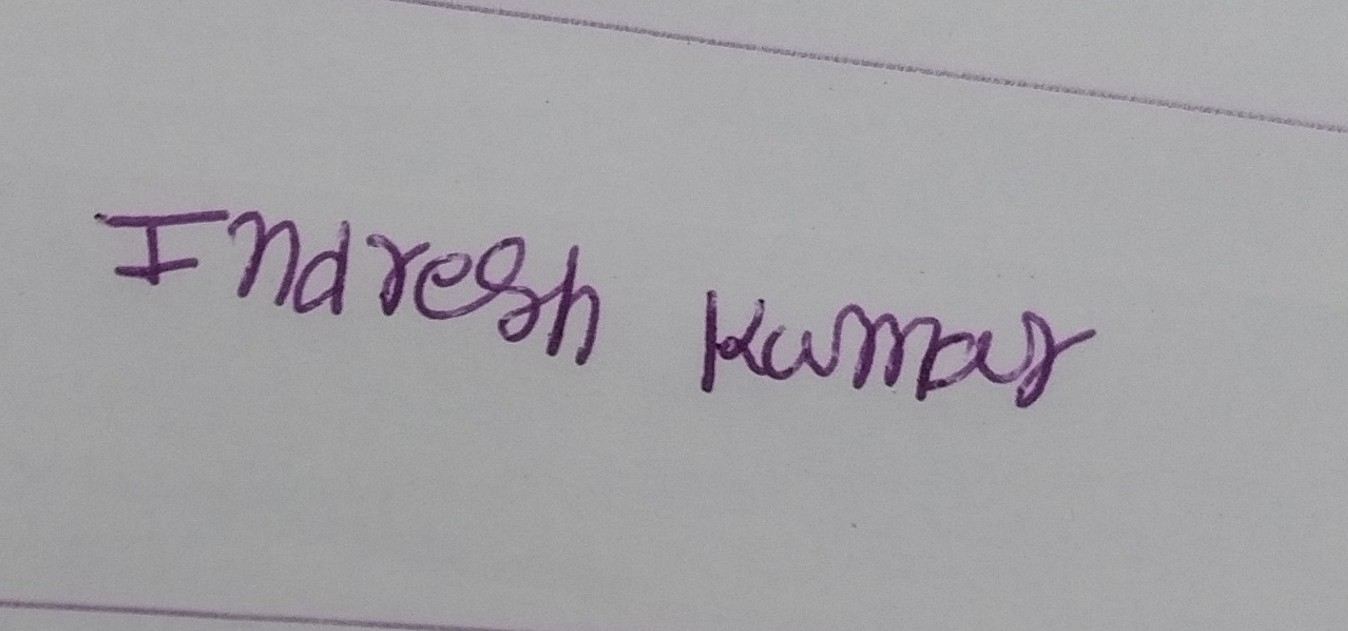 Indresh Kumar